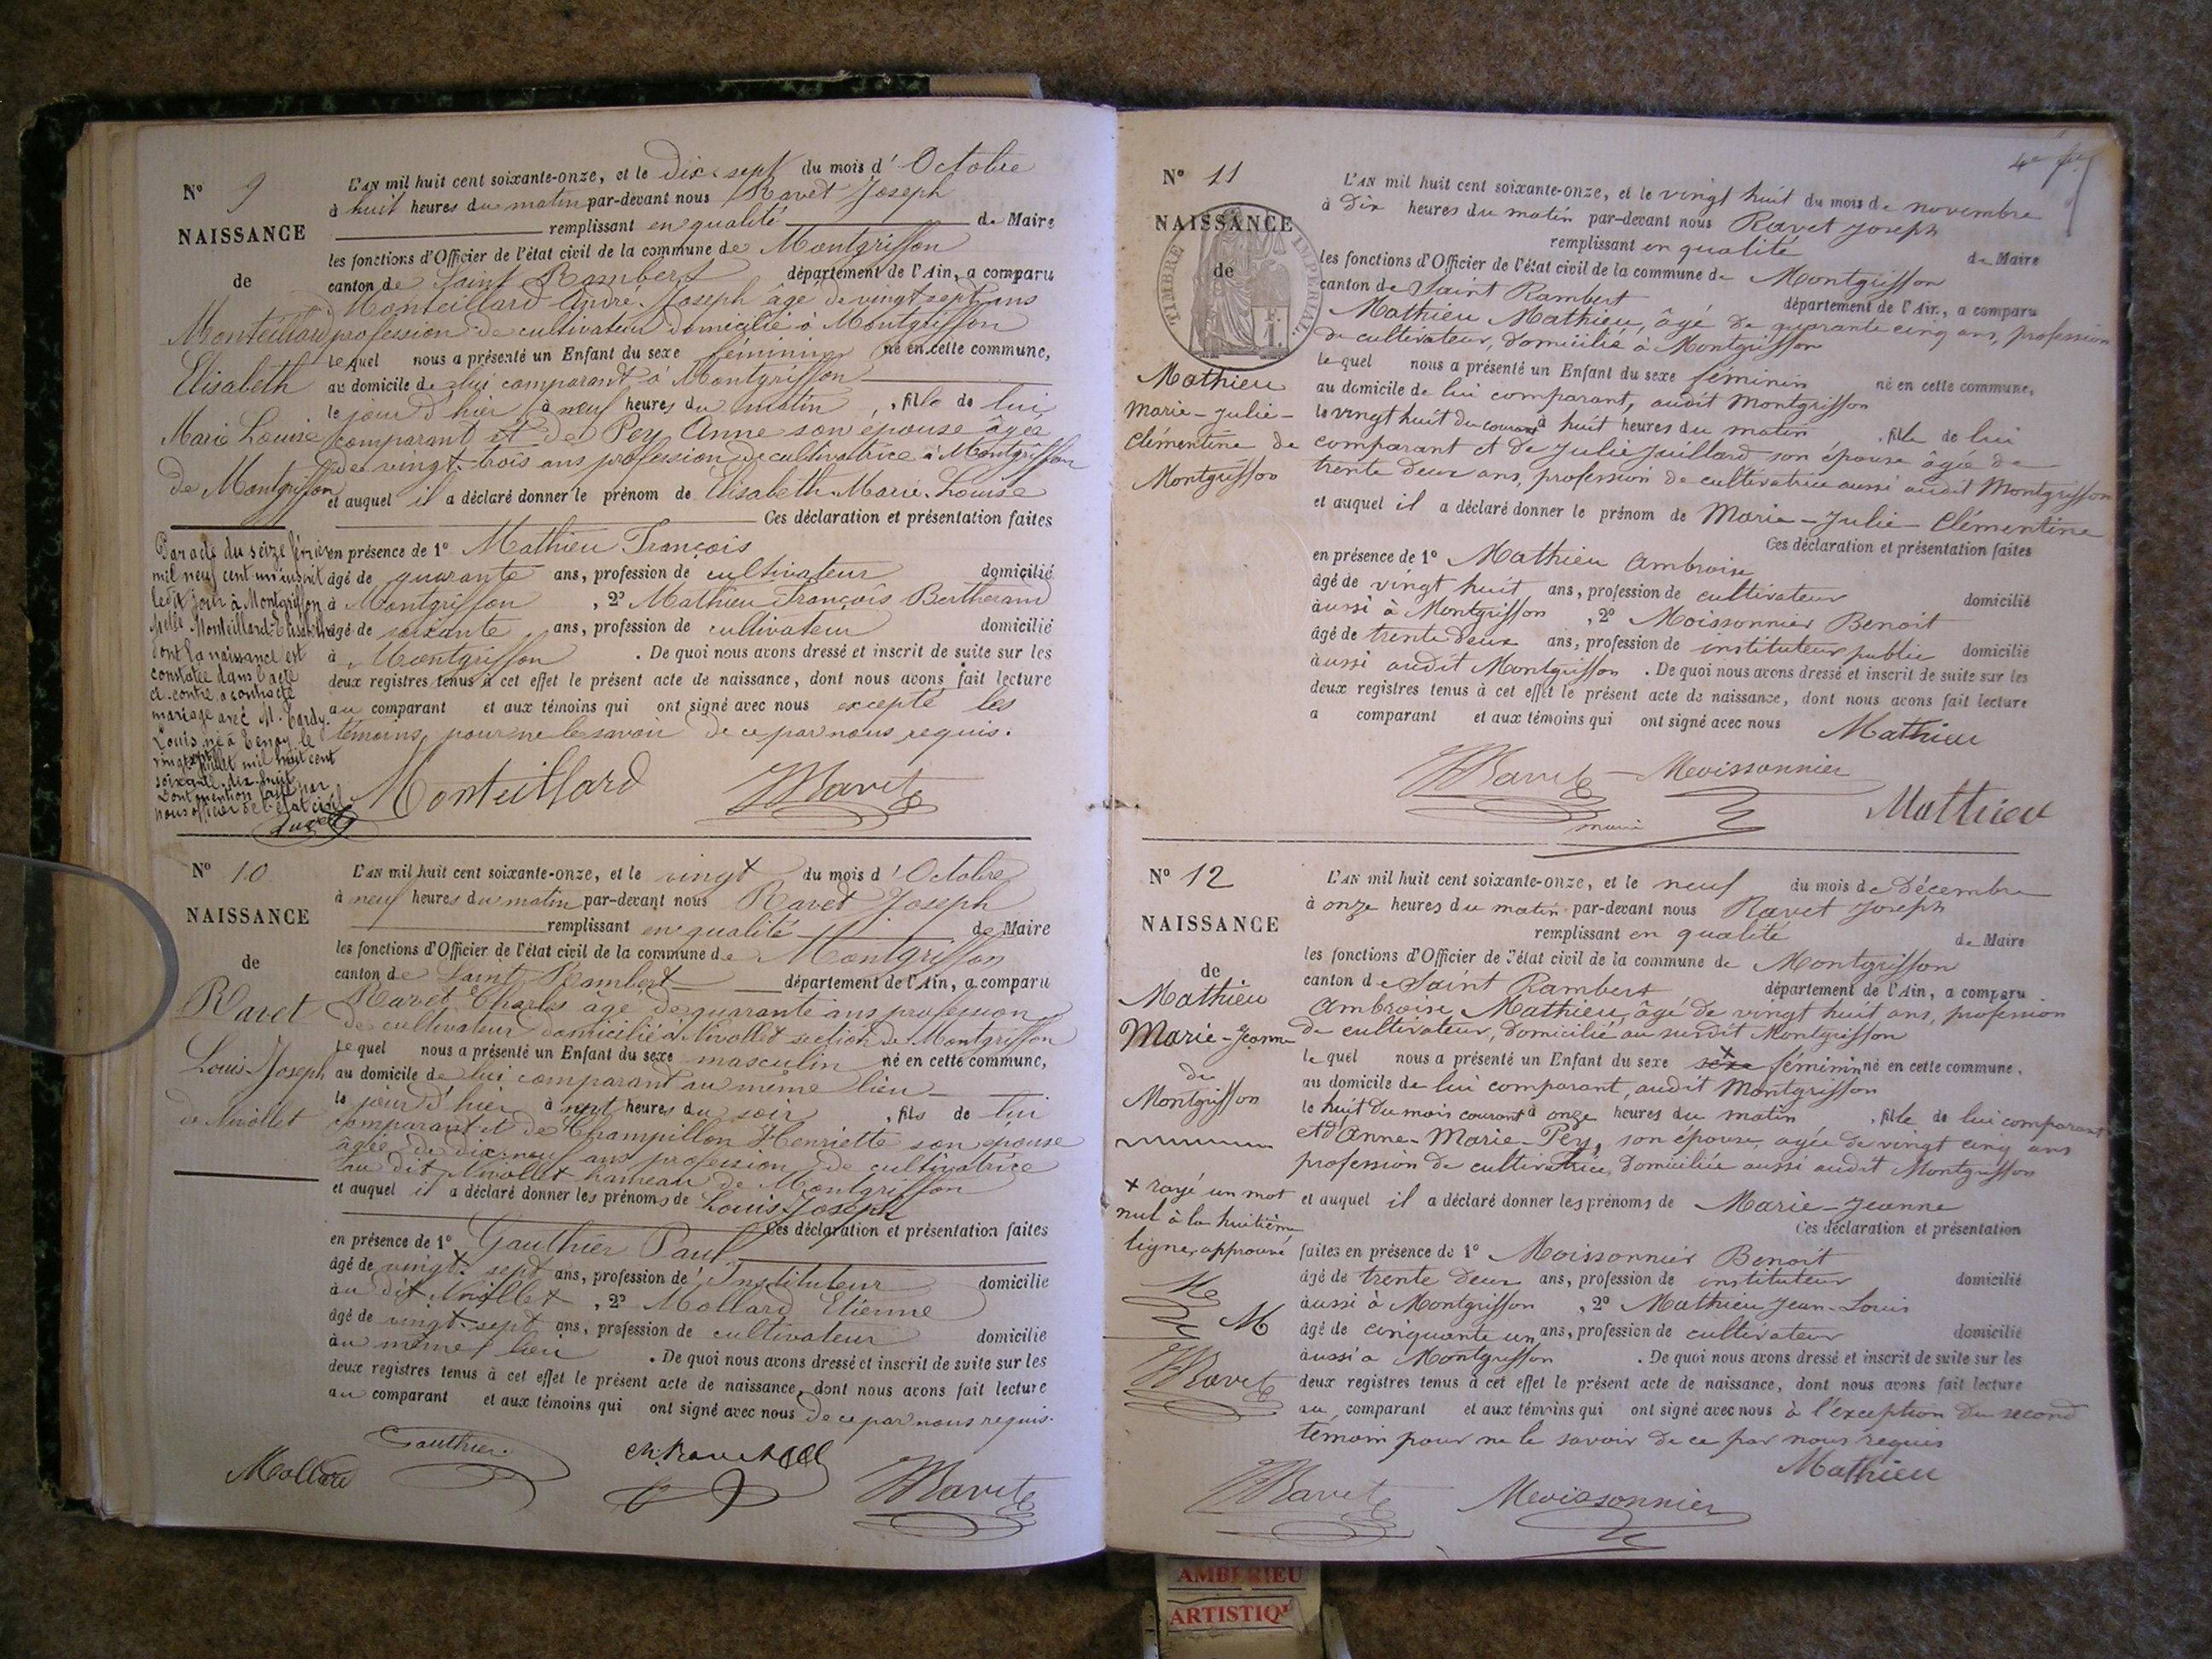 N° 9
NAISSANCE
de
Monteillard
Elisabeth
Marie Louise
de Montgriffon
L'AN mil huit cent soixante-onze, et le dix-sept du mois d'Octobre
à huit heures du matin par-devant nous Ravet Joseph
remplissant en qualité de Maire
les fonctions d'Officier de l'état civil de la commune de Montgriffon
canton de Saint Rambert département de l'Ain, a comparu
Monteillard André Joseph âgé de vingt sept ans
profession de cultivateur domicilié à Montgriffon
lequel nous a présenté un Enfant du sexe féminin né en cette commune,
au domicile de lui comparant à Montgriffon
le jour d'hier à neuf heures du matin, fille de lui
comparant et de Pey Anne son épouse âgée
de vingt-trois ans profession de cultivatrice à Montgriffon
et auquel il a déclaré donner le prénom de Elisabeth Marie Louise
Ces déclaration et présentation faites
en présence de 1° Mathieu François
âgé de quarante ans, profession de cultivateur domicilié
à Montgriffon, 2° Mathieu François Bertherand
âgé de soixante ans, profession de cultivateur domicilié
à Montgriffon. De quoi nous avons dressé et inscrit de suite sur les
deux registres tenus à cet effet le présent acte de naissance, dont nous avons fait lecture
au comparant et aux témoins qui ont signé avec nous excepté les
témoins, pour ne le savoir de ce par nous requis.
Monteillard JRavet
Par acte du seize février
mil neuf cent un inscrit
ledit jour à Montgriffon
Melle Monteillard Elisabeth
dont la naissance est
constatée dans l'acte
ci-contre a contracté
mariage avec M. Tardy
Louis né à Tenay le
vingt sept juillet mil huit cent
soixante-dix-huit
Dont mention faite par
nous officier de l'état civil
N° 10
NAISSANCE
de
Ravet
Louis-Joseph
de Nivollet
L'AN mil huit cent soixante-onze, et le vingt du mois d'Octobre
à neuf heures du matin par-devant nous Ravet Joseph
remplissant en qualité de Maire
les fonctions d'Officier de l'état civil de la commune de Montgriffon
canton de Saint Rambert département de l'Ain, a comparu
Ravet Charles âgé de quarante ans profession
de cultivateur domicilié à Nivollet section de Montgriffon
lequel nous a présenté un Enfant du sexe masculin né en cette commune,
au domicile de lui comparant au même lieu
le jour d'hier à sept heures du soir, fils de lui
comparant et de Champillon Henriette son épouse
âgée de dix-neuf ans profession de cultivatrice
au dit Nivollet hameau de Montgriffon
et auquel il a déclaré donner les prénoms de Louis Joseph
Ces déclaration et présentation faites
en présence de 1° Gauthier Paul
âgé de vingt-sept ans, profession de Instituteur domicilié
au dit Nivollet, 2° Mollard Etienne
âgé de vingt-sept ans, profession de cultivateur domicilié
au même lieu. De quoi nous avons dressé et inscrit de suite sur les
deux registres tenus à cet effet le présent acte de naissance, dont nous avons fait lecture
au comparant et aux témoins qui ont signé avec nous de ce par nous requis.
Mollard Gauthier Ch. Ravet JRavet
4e
N° 11
NAISSANCE
de
TIMBRE IMPERIAL
Mathieu
Marie-Julie-
Clémentine de
Montgriffon
L'AN mil huit cent soixante-onze, et le vingt huit du mois de novembre
à dix heures du matin par-devant nous Ravet Joseph
remplissant en qualité de Maire
les fonctions d'Officier de l'état civil de la commune de Montgriffon
canton de Saint Rambert département de l'Ain, a comparu
Mathieu Mathieu, âgé de quarante cinq ans, profession
de cultivateur, domicilié à Montgriffon
lequel nous a présenté un Enfant du sexe féminin né en cette commune,
au domicile de lui comparant, audit Montgriffon
le vingt huit du courant à huit heures du matin, fille de lui
comparant et de Julie Juillard son épouse âgée de
trente deux ans, profession de cultivatrice aussi audit Montgriffon
et auquel il a déclaré donner le prénom de Marie-Julie-Clémentine
Ces déclaration et présentation faites
en présence de 1° Mathieu Ambroise
âgé de vingt huit ans, profession de cultivateur domicilié
aussi à Montgriffon, 2° Moissonnier Benoit
âgé de trente deux ans, profession de instituteur public domicilié
aussi audit Montgriffon. De quoi nous avons dressé et inscrit de suite sur les
deux registres tenus à cet effet le présent acte de naissance, dont nous avons fait lecture
a comparant et aux témoins qui ont signé avec nous Mathieu
JRavet Moissonnier
maire Mathieu
N° 12
NAISSANCE
de
Mathieu
Marie-Jeanne
de
Montgriffon
L'AN mil huit cent soixante-onze, et le neuf du mois de décembre
à onze heures du matin par-devant nous Ravet Joseph
remplissant en qualité de Maire
les fonctions d'Officier de l'état civil de la commune de Montgriffon
canton de Saint Rambert département de l'Ain, a comparu
Ambroise Mathieu, âgé de vingt huit ans, profession
de cultivateur, domicilié au susdit Montgriffon
lequel nous a présenté un Enfant du sexe sexe féminin né en cette commune,
au domicile de lui comparant, audit Montgriffon
le huit du mois courant à onze heures du matin, fille de lui comparant
et d'Anne-Marie-Pey, son épouse, agée de vingt cinq ans
profession de cultivatrice, domiciliée aussi audit Montgriffon
et auquel il a déclaré donner les prénoms de Marie-Jeanne
Ces déclaration et présentation
faites en présence de 1° Moissonnier Benoit
âgé de trente deux ans, profession de instituteur domicilié
aussi à Montgriffon, 2° Mathieu Jean-Louis
âgé de cinquante un ans, profession de cultivateur domicilié
aussi à Montgriffon. De quoi nous avons dressé et inscrit de suite sur les
deux registres tenus à cet effet le présent acte de naissance, dont nous avons fait lecture
au comparant et aux témoins qui ont signé avec nous à l'exception du second
témoin pour ne le savoir de ce par nous requis
Mathieu
JRavet Moissonnier
+ rayé un mot
nul à la huitième
ligne, approuvé
Mo
M
JRavet
AMBERIEU
ARTISTIQ